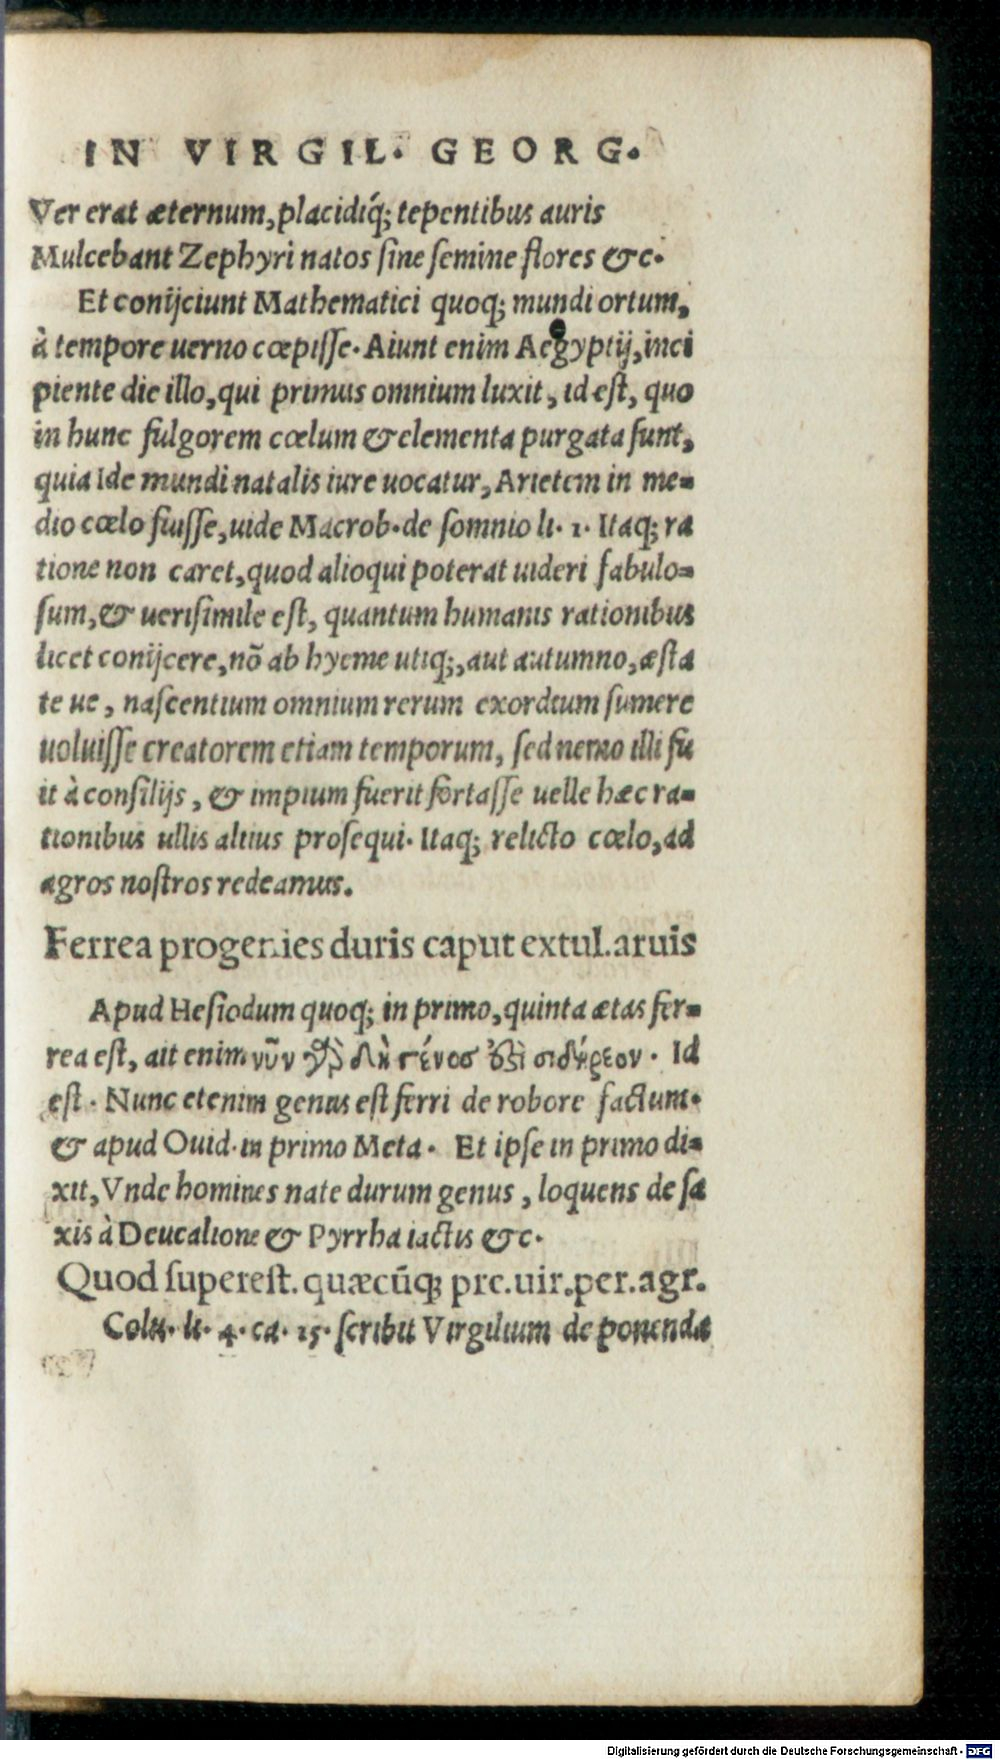 IN VIRGIL. GEORG.
Ver erat æternum, placidiq́; tepentibus auris
Mulcebant Zephyri natos ſine ſemine flores &c.
Et conijciunt Mathematici quoq; mundi ortum,
à tempore uerno cœpiſſe. Aiunt enim Aegyptij, inci
piente die illo, qui primus omnium luxit, id eſt, quo
in hunc fulgorem cœlum & elementa purgata ſunt,
quia Ide mundi natalis iure uocatur, Arietem in me-
dio cœlo fuiſſe, uide Macrob. de ſomnio li. 1. Itaq; ra
tione non caret, quod alioqui poterat uideri fabulo-
ſum, & ueriſimile eſt, quantum humanis rationibus
licet conijcere, nõ ab hyeme utiq;, aut autumno, æſta
te ue, naſcentium omnium rerum exordium ſumere
uoluiſſe creatorem etiam temporum, ſed nemo illi fu
it à conſilijs, & impium fuerit fortaſſe uelle hæc ra-
tionibus ullis altius proſequi. Itaq; relicto cœlo, ad
agros noſtros redeamus.
Ferrea progenies duris caput extul. aruis
Apud Heſiodum quoq; in primo, quinta ætas fer-
rea eſt, ait enim νῦν γὰρ δὴ γένοσ ἐϛὶ σιδήρεον. Id
eſt. Nunc etenim genus eſt ferri de robore factum.
& apud Ouid. in primo Meta. Et ipſe in primo di-
xit, Vnde homines nate durum genus, loquens de ſa
xis à Deucalione & Pyrrha iactis &c.
Quod ſupereſt. quæcũq; pre. uir. per. agr.
Colu. li. 4. ca. 15. ſcribit Virgilium de ponenda
Digitalisierung gefördert durch die Deutsche Forschungsgemeinschaft - DFG